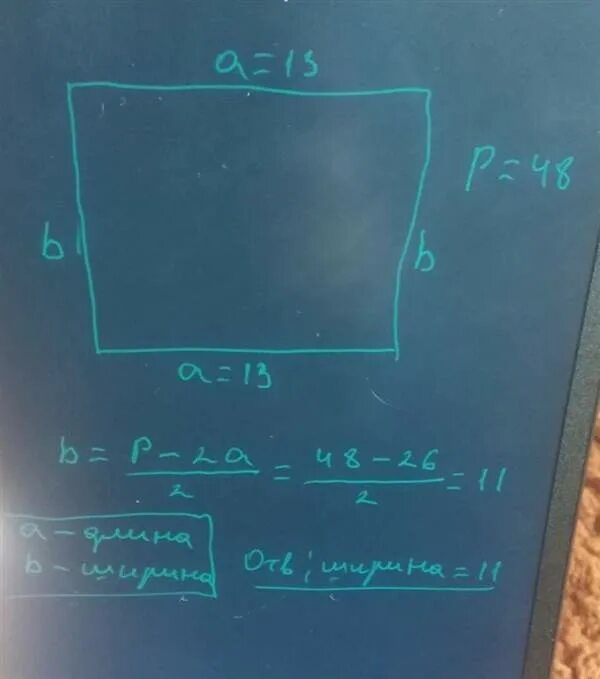 a = 13
b
b
P = 48
a = 13
b = \frac{P - 2a}{2} = \frac{48 - 26}{2} = 11
a - длина
b - ширина
Отв: ширина = 11